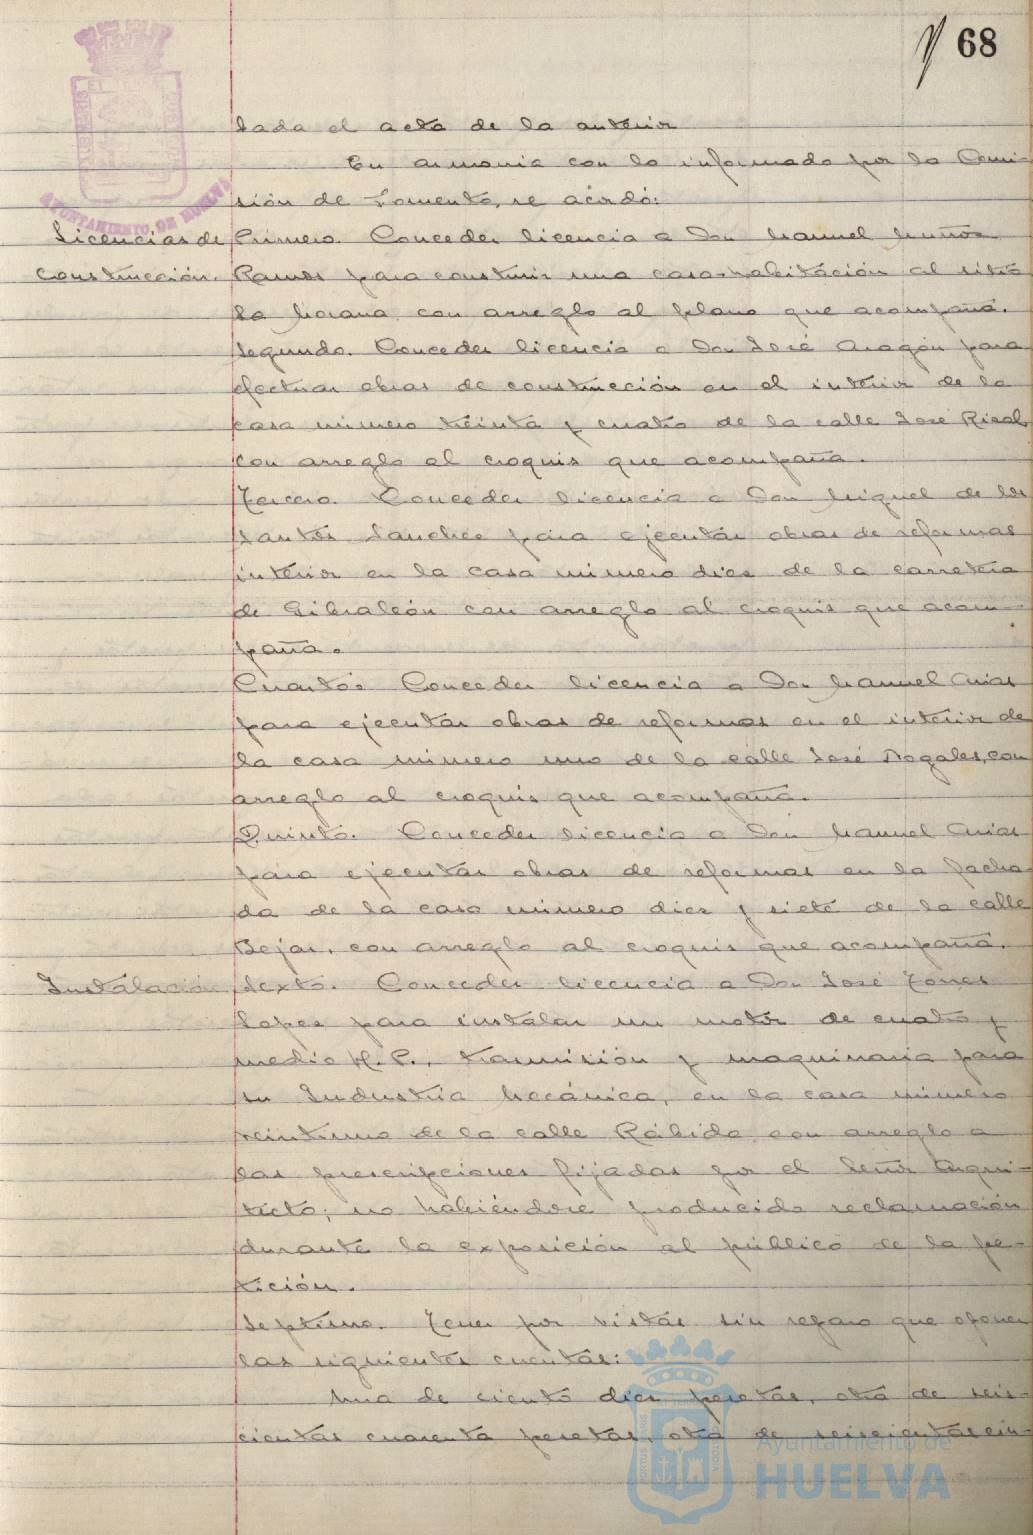 68
AYUNTAMIENTO DE HUELVA
bada el acta de la anterior
En armonia con lo informado por la Comi-
sión de Fomento, se acordó:
Licencias de
Construcción.
Primero. Conceder licencia a Don Manuel Muñoz
Ramos para construir una casa-habitación al sitio
La Morana con arreglo al plano que acompaña.
Segundo. Conceder licencia a Don José Aragón para
efectuar obras de construcción en el interior de la
casa número treinta y cuatro de la calle José Rizal,
con arreglo al croquis que acompaña.
Tercero. Conceder licencia a Don Miguel de los
Santos Sanchez para ejecutar obras de reformas
interior en la casa número diez de la carretera
de Gibraleón con arreglo al croquis que acom-
paña.
Cuarto. Conceder licencia a Don Manuel Arias
para ejecutar obras de reformas en el interior de
la casa número uno de la calle José Nogales, con
arreglo al croquis que acompaña.
Quinto. Conceder licencia a Don Manuel Arias
para ejecutar obras de reformas en la facha
da de la casa número diez y siete de la calle
Bejar, con arreglo al croquis que acompaña.
Instalación
Sexto. Conceder licencia a Don José Torres
Lopez para instalar un motor de cuatro y
medio H.P., trasmisión y maquinaria para
su Industria Mecánica, en la casa número
veintiuno de la calle Rábida con arreglo a
las prescripciones fijadas por el Señor Arqui-
tecto; no habiéndose producido reclamación
durante la exposición al público de la pe-
tición.
Septimo. Tener por vistas sin reparo que oponer
las siguientes cuentas:
Una de ciento diez pesetas, otra de seis-
cientas cuarenta pesetas, otra de seiscientas cin-
Ayuntamiento de
HUELVA